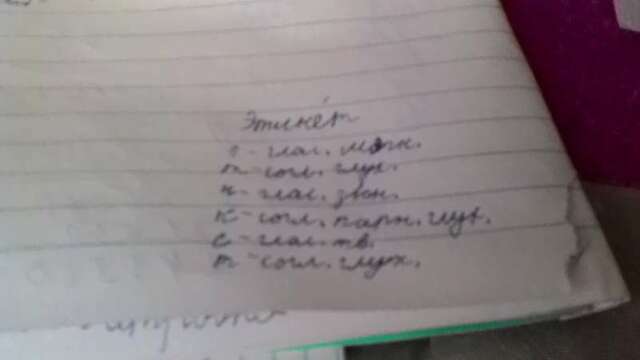 Этикет
э - глас. мягк.
т - согл. глух.
и - глас. звон.
к - согл. парн. глух.
е - глас. тв.
т - согл. глух.